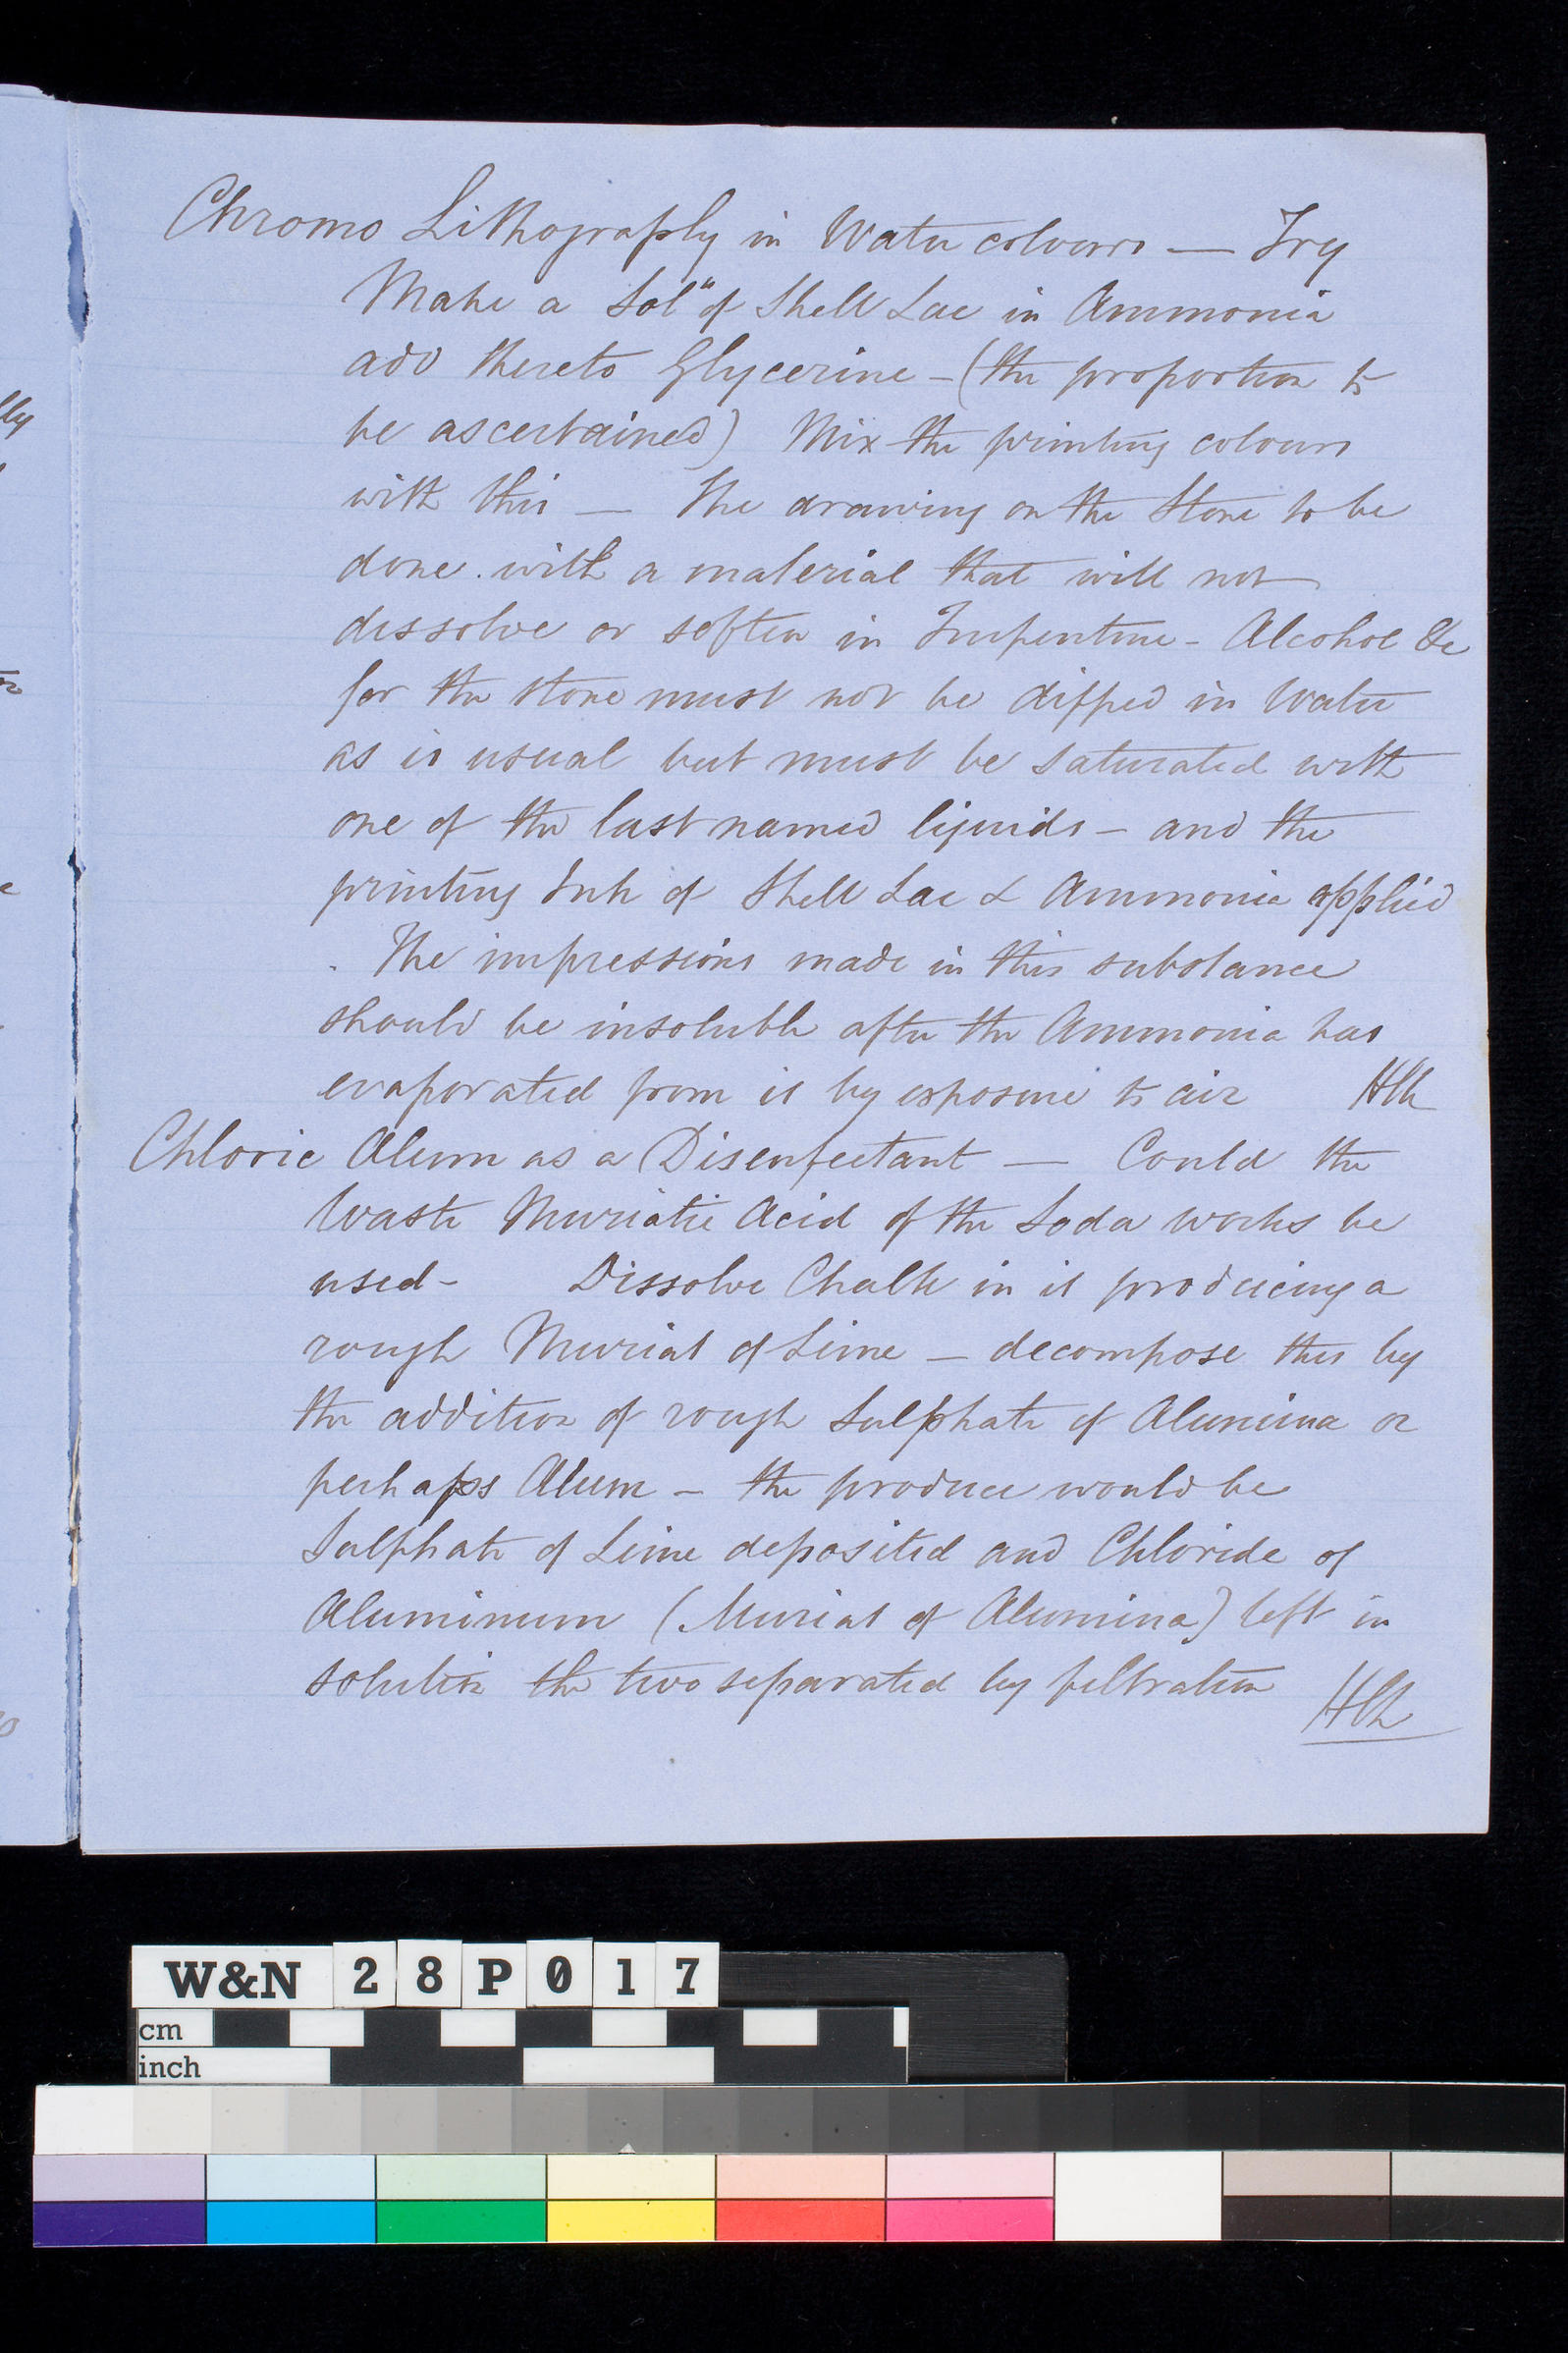 Chromo Lithography in Water colours — Try
Make a Solⁿ of Shell Lac in Ammonia
add thereto Glycerine — (the proportion to
be ascertained) Mix the printing colours
with this — The drawing on the Stone to be
done with a material that will not
dissolve or soften in Turpentine - Alcohol &c
for the stone must not be dipped in Water
as is usual but must be saturated with
one of the last named liquids — and the
printing Ink of Shell Lac & Ammonia applied
. The impressions made in this substance
should be insoluble after the Ammonia has
evaporated from it by exposure to air
Chloric Alum as a Disenfectant — Could the
Waste Muriatic Acid of the Soda works be
used - Dissolve Chalk in it producing a
rough Muriat of Lime — decompose this by
the addition of rough Sulphate of Alumina or
perhaps Alum — the produce would be
Sulphate of Lime deposited and Chloride of
Aluminum (Muriat of Alumina) left in
solution the two separated by filtration
W&N 28P017
cm
inch